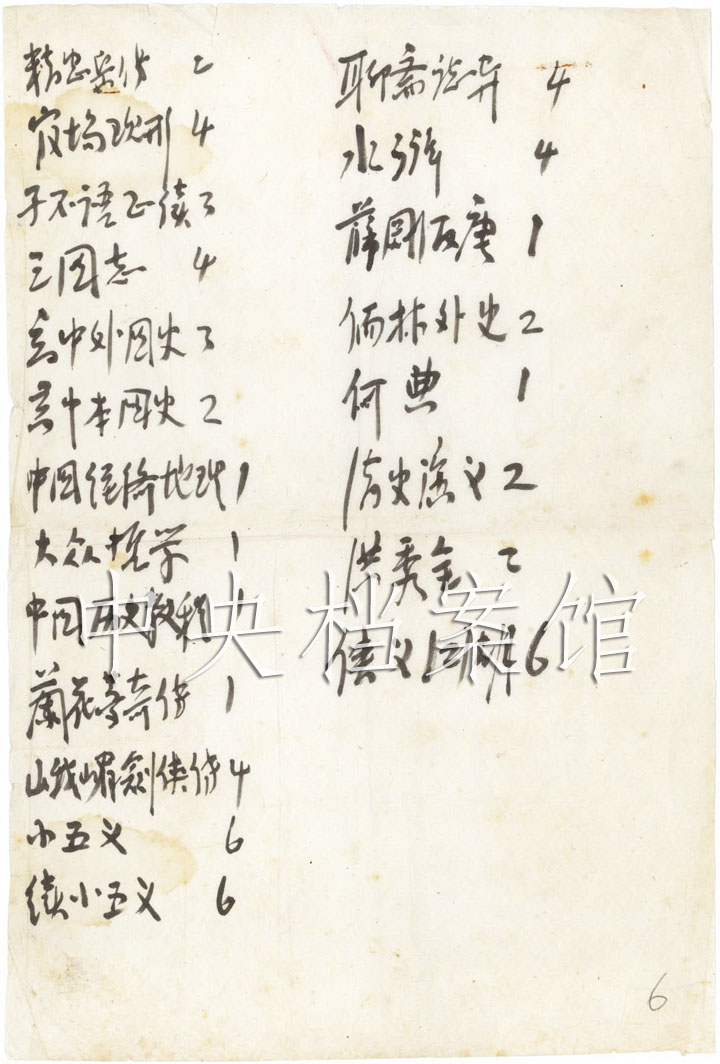 精忠岳传 2
官场现形 4
子不语正续 3
三国志 4
高中外国史 3
高中本国史 2
中国经济地理 1
大众哲学 1
中国历史教程 1
兰花梦奇传 1
峨嵋剑侠传 4
小五义 6
续小五义 6
聊斋志异 4
水浒 4
薛刚反唐 1
儒林外史 2
何典 1
清史演义 2
洪秀全 2
侠义江湖 6
中央档案馆
6